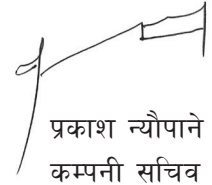 प्रकाश न्यौपाने
कम्पनी सचिव